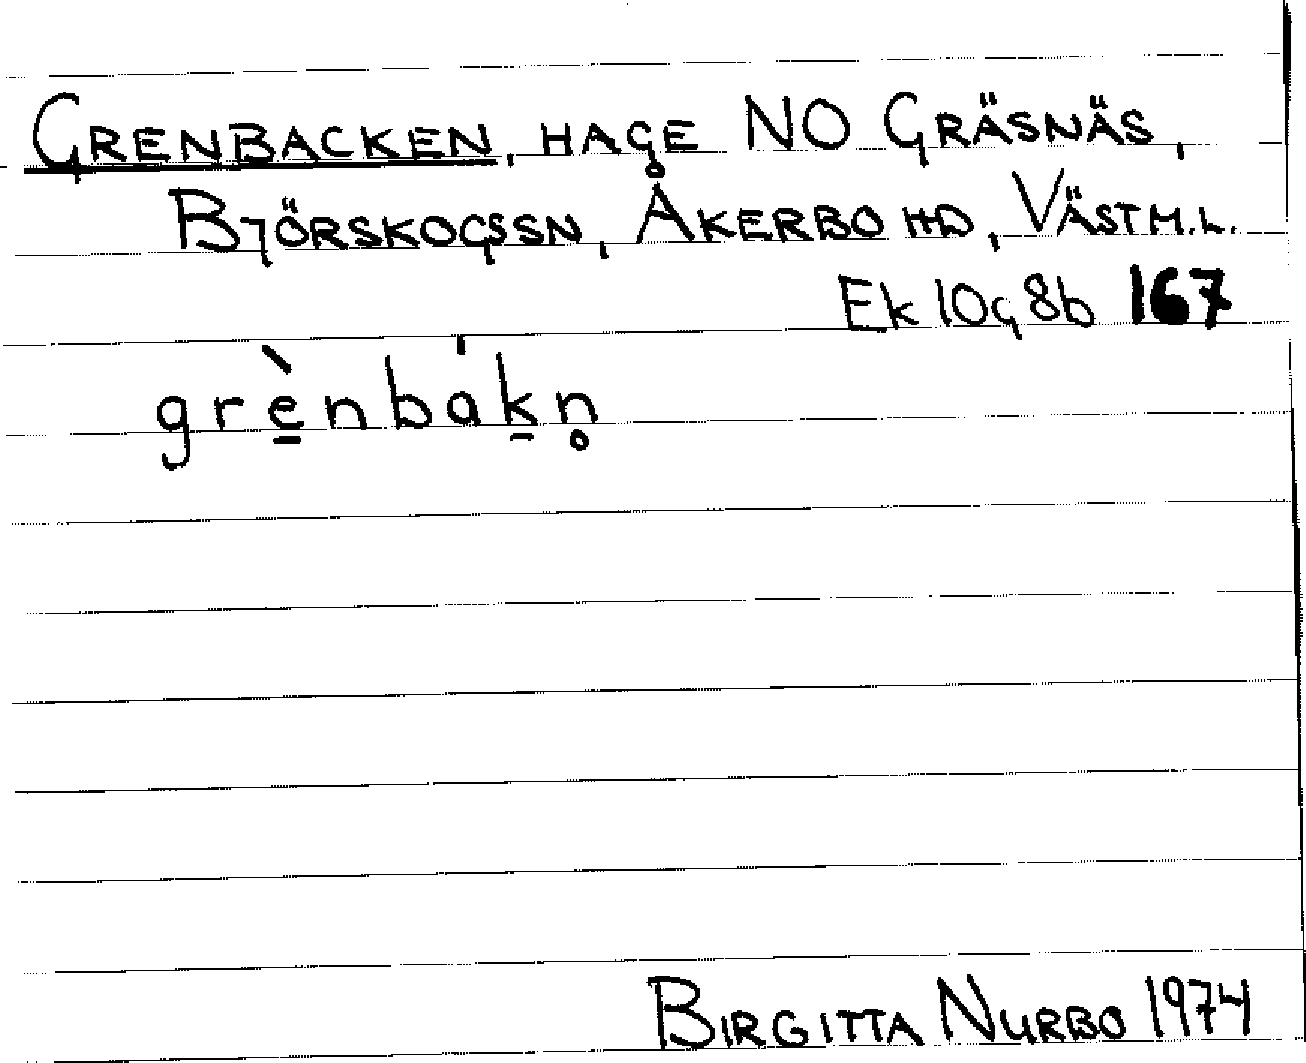 GRENBACKEN, HAGE NO GRÄSNÄS,
BJÖRSKOGSSN, ÅKERBO HD, VÄSTM.L.
Ek 10g 8b 167
grè̱nbáḵn̥
BIRGITTA NURBO 1974